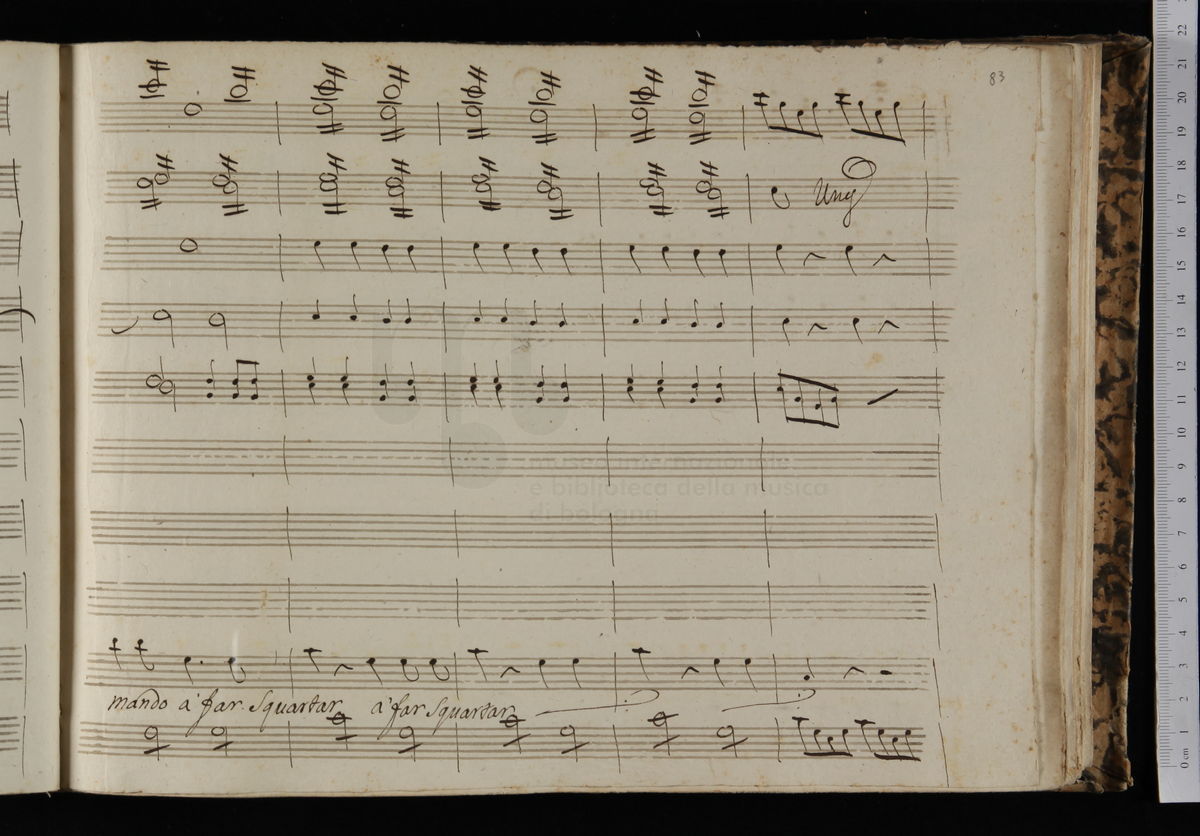 83
Uny
mando a' far Squartar a' far Squartar
museo internazionale
e biblioteca della musica
di bologna
22
21
20
19
18
17
16
15
14
13
12
11
10
9
8
7
6
5
4
3
2
1
0 cm